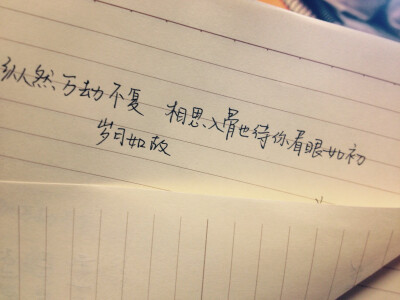 纵然万劫不复 相思入骨也待你眉眼如初
岁月如故